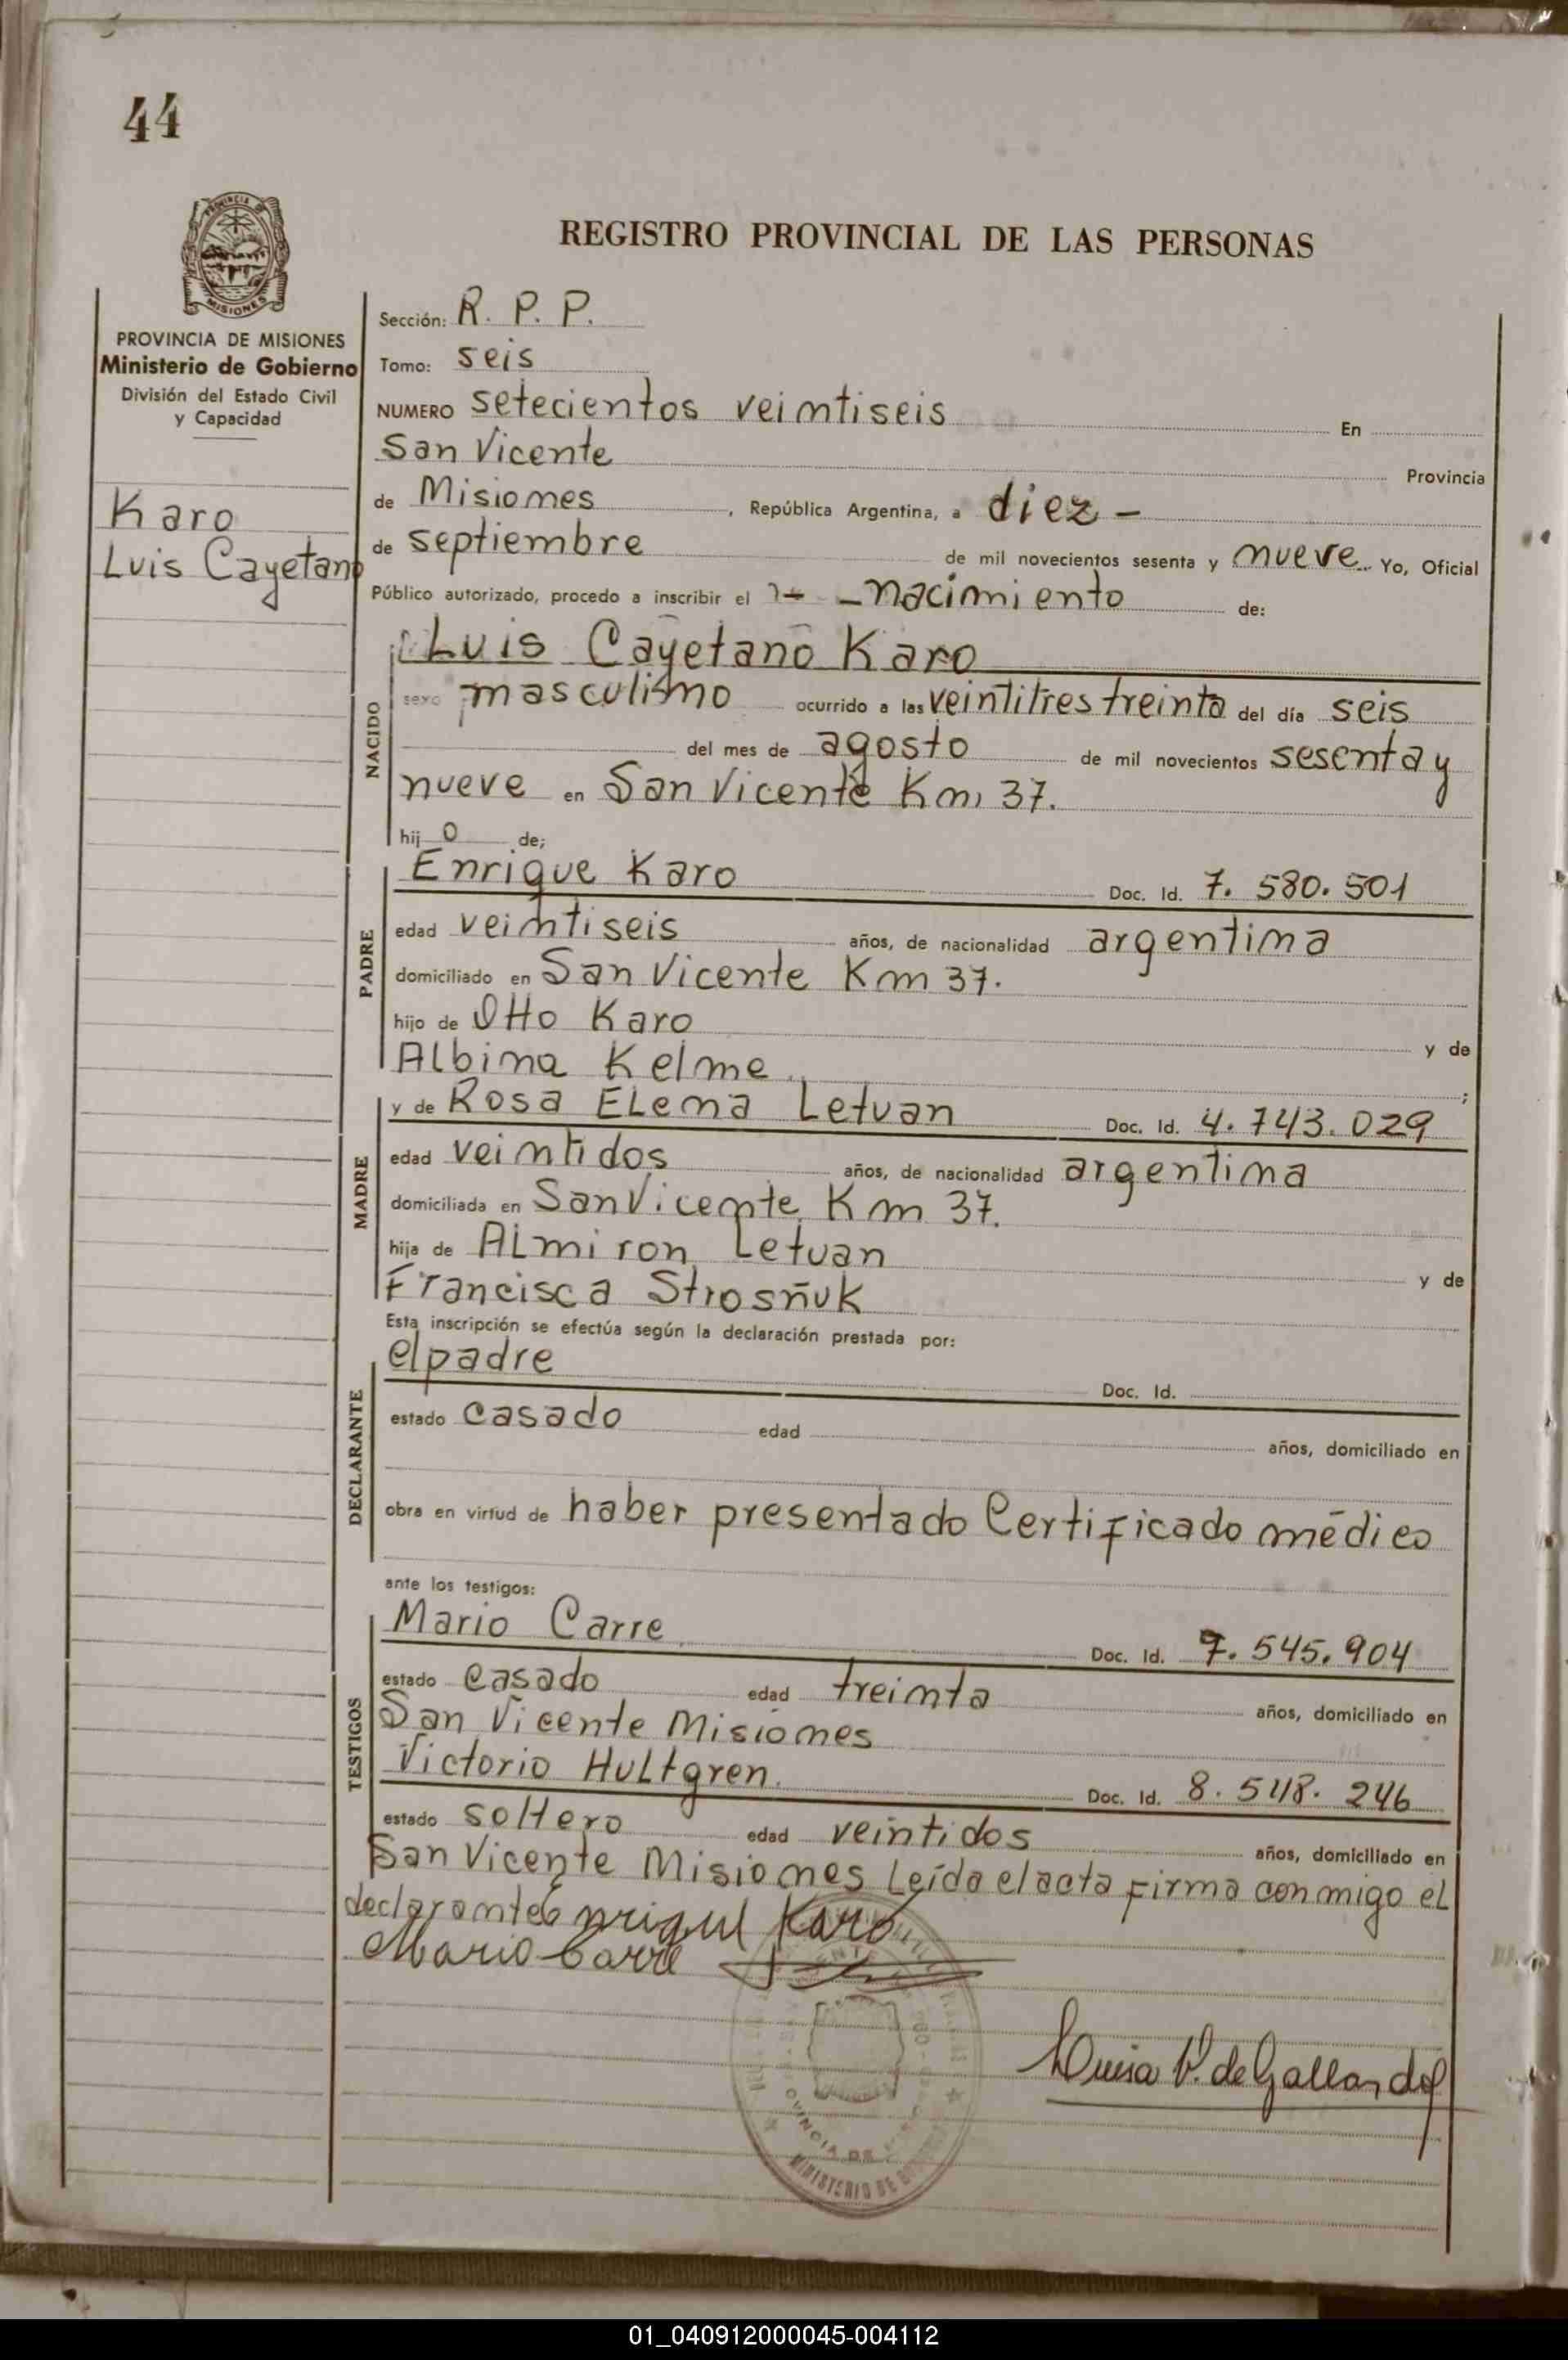 44
REGISTRO PROVINCIAL DE LAS PERSONAS
PROVINCIA DE
MISIONES
PROVINCIA DE MISIONES
Ministerio de Gobierno
División del Estado Civil
y Capacidad
Karo
Luis Cayetano
Sección: R. P. P.
Tomo: seis
NUMERO setecientos veintiseis En
San Vicente Provincia
de Misiones, República Argentina, a diez -
de septiembre de mil novecientos sesenta y nueve. Yo, Oficial
Público autorizado, procedo a inscribir el nacimiento de:
NACIDO
Luis Cayetano Karo
sexo masculino ocurrido a las veintitres treinta del día seis
del mes de agosto de mil novecientos sesenta y
nueve en San Vicente Km 37.
hijo de;
PADRE
Enrique Karo Doc. Id. 7. 580. 501
edad veintiseis años, de nacionalidad argentina
domiciliado en San Vicente Km 37.
hijo de Otto Karo y de
Albina Kelme ;
MADRE
y de Rosa Elena Letvan Doc. Id. 4. 743. 029
edad veintidos años, de nacionalidad argentina
domiciliada en San Vicente Km 37.
hija de Almiron Letvan y de
Francisca Strosñuk
Esta inscripción se efectúa según la declaración prestada por:
DECLARANTE
el padre Doc. Id.
estado casado edad años, domiciliado en
obra en virtud de haber presentado Certificado médico
ante los testigos:
TESTIGOS
Mario Carre Doc. Id. 7. 545. 904
estado casado edad treinta años, domiciliado en
San Vicente Misiones
Victorio Hultgren. Doc. Id. 8. 548. 246
estado soltero edad veintidos años, domiciliado en
San Vicente Misiones Leída el acta firma conmigo el
declarante Enrique Karo
Mario Carre
Luisa V. de Gallardo
MINISTERIO DE
01_040912000045-004112